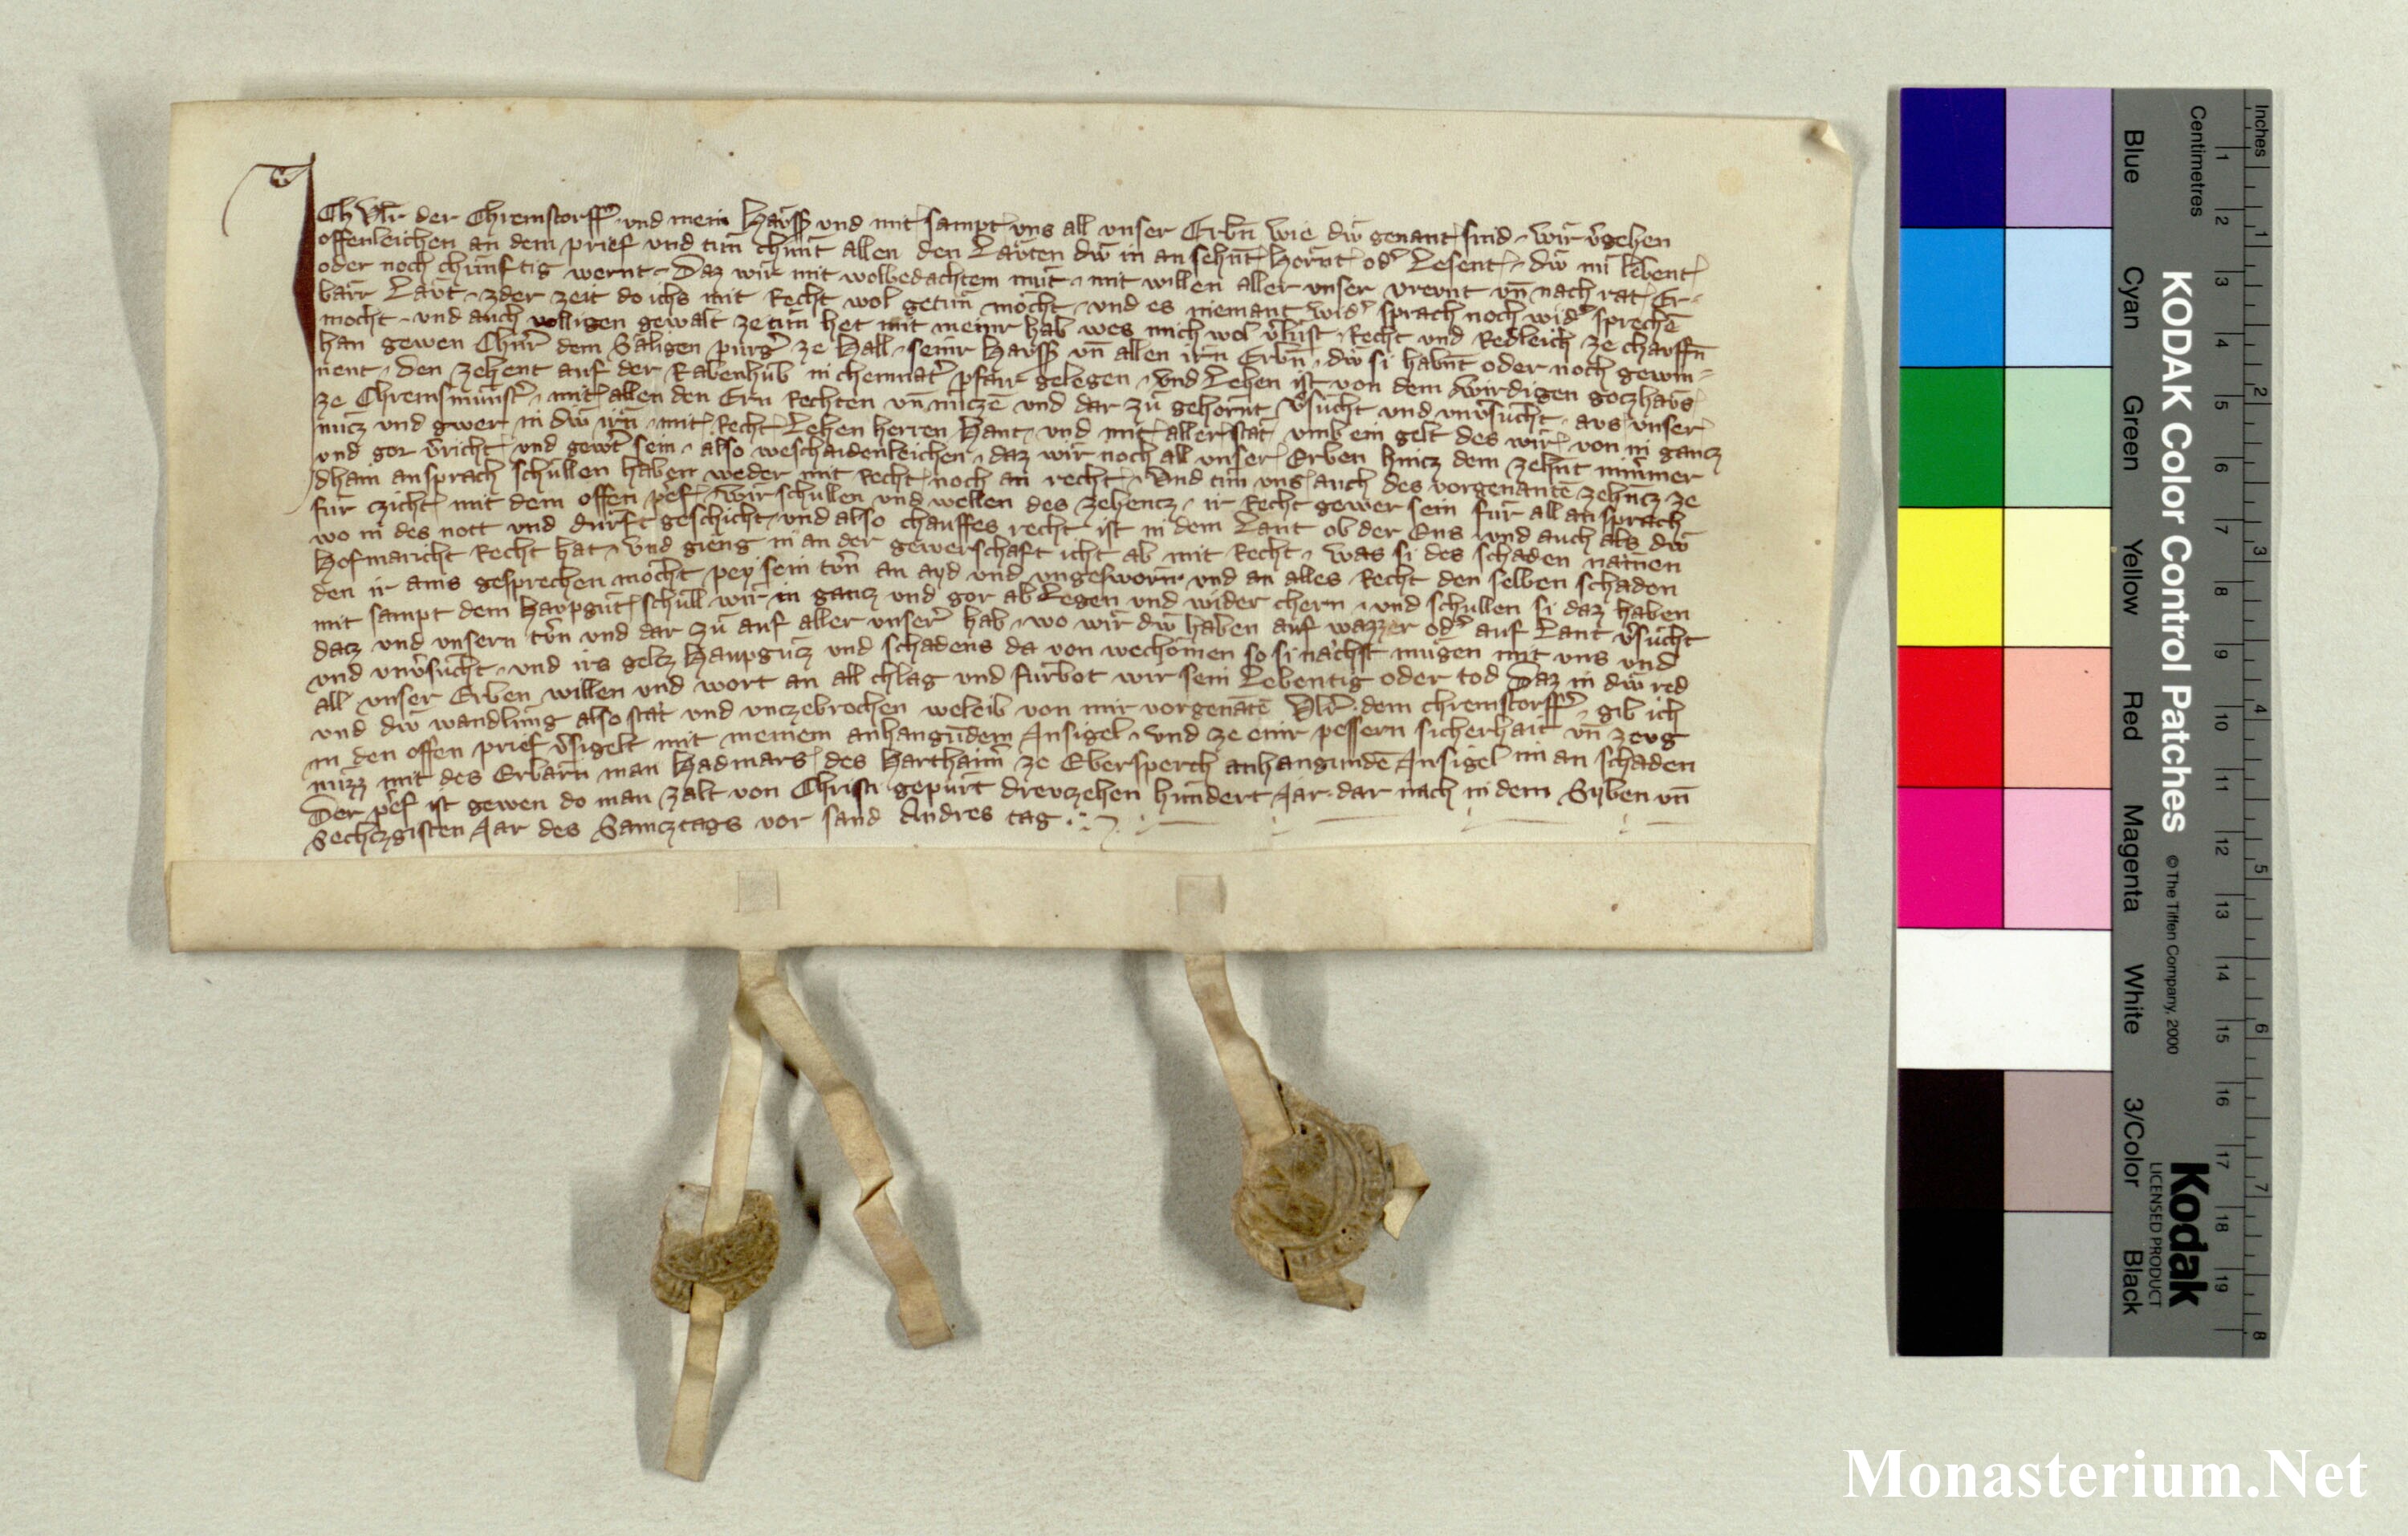 Ich Ulr̄ der Chremstorff̄ und mein Haẘsf̄ und mit sampt uns all unser Erbn̄ wie diẘ genant sind wir v̄gehen
offenleichen an dem prief und tun chunt allen den Laẘten diẘ in an sehn̄t Hoͤrnt od̄ Lesent diẘ nu lebent
oder noch chunftig wernt Daz wir mit wolbedachtem muͤt mit willen aller unser vreunt un̄ nach rat Er-
bärr Läẘt zder zeit do ichs mit Recht wol getuͤn mocht und es niemant wid̄ sprach noch wid̄ sprechē
mocht und auch volligen gewalt ze tuͤn het mit meinr hab wes mich wol v̄luͤst Recht und Redleich ze chauffn̄
han geben Chunr̄ dem Säligen purḡ ze Hall seinr Haẘsf̄ un̄ allen irn̄ Erbn̄ diẘ si habn̄t oder noch gewin-
nent Den zehent auf der Rabenhuͤb in chemnat̄ pfarr gelegen und Lehen ist von dem wirdigen goczhaus
ze Chremsmunst̄ mit allen den Ern Rechten un̄ nuczē und dar zuͤ gehoͤrnt v̄suͤcht und unv̄suͤcht aus unser
nucz und gwer in diẘ irn̄ mit Recht Lehen herren Hant und mit aller stat umb ein gelt des wir von in gancz
und gor v̄richt und gewert sein also weschaidenleichen daz wir noch all unser Erben hincz dem zehn̄t nim̄mer
dhain ansprach schullen haben weder mit Recht noch an recht Und tun uns auch des vorgenantē zehn̄cz ze
fur czicht mit dem offen prief Wir schullen und wellen des zehencz ir Recht gewer sein fur all ansprach
wo in des nott und durft geschicht und also chauffes recht ist in dem Lant ob der Ens und auch als diẘ
Hofmaricht Recht hat und gieng in an der gewerschaft icht ab mit Recht was si des schaden nämen
den ir ains gesprechen mocht pey sein trn̄ an ayd und ungesworn und an alles Recht den selben schaden
mit sampt dem Haupguͤt schull wir in gancz und gor ab Legen und wider chern und schullen si daz haben
dacz und unsern trn̄ und dar zuͤ auf aller unser hab wo wir diẘ haben auf wazzer od̄ auf Lant v̄suͤcht
und unv̄suͤcht und irs geltz Haupguͤcz und schadens da von wechömen so si nachst mugen mit uns und
all unser Erben willen und wort an all chlag und furbot wir sein Lebentig oder tod Daz in diẘ red
und diẘ wandlung also stät und unczebrochen weleib von mir vorgenātē Ulr̄ dem chremstorff̄ gib ich
in den offen prief v̄sigelt mit meinem anhangūdem Insigel und ze einr pessern sicherhait un̄ zeug
nuzz mit des Erbarn man Hadmars des Harthaim̄ ze Ebersperch anhangundē Insigel im an schaden
Der prief ist geben do man zalt von Christi gepurt dreuczehen hundert Jar dar nach in dem Syben un̄
Sechczgisten Jar des Samcztags vor sand Andres tag
Inches
Centimetres
1 2 3 4 5 6 7 8 9 10 11 12 13 14 15 16 17 18 19
1 2 3 4 5 6 7 8
KODAK Color Control Patches
© The Tiffen Company, 2000
Kodak
LICENSED PRODUCT
Blue
Cyan
Green
Yellow
Red
Magenta
White
3/Color
Black
Monasterium.Net